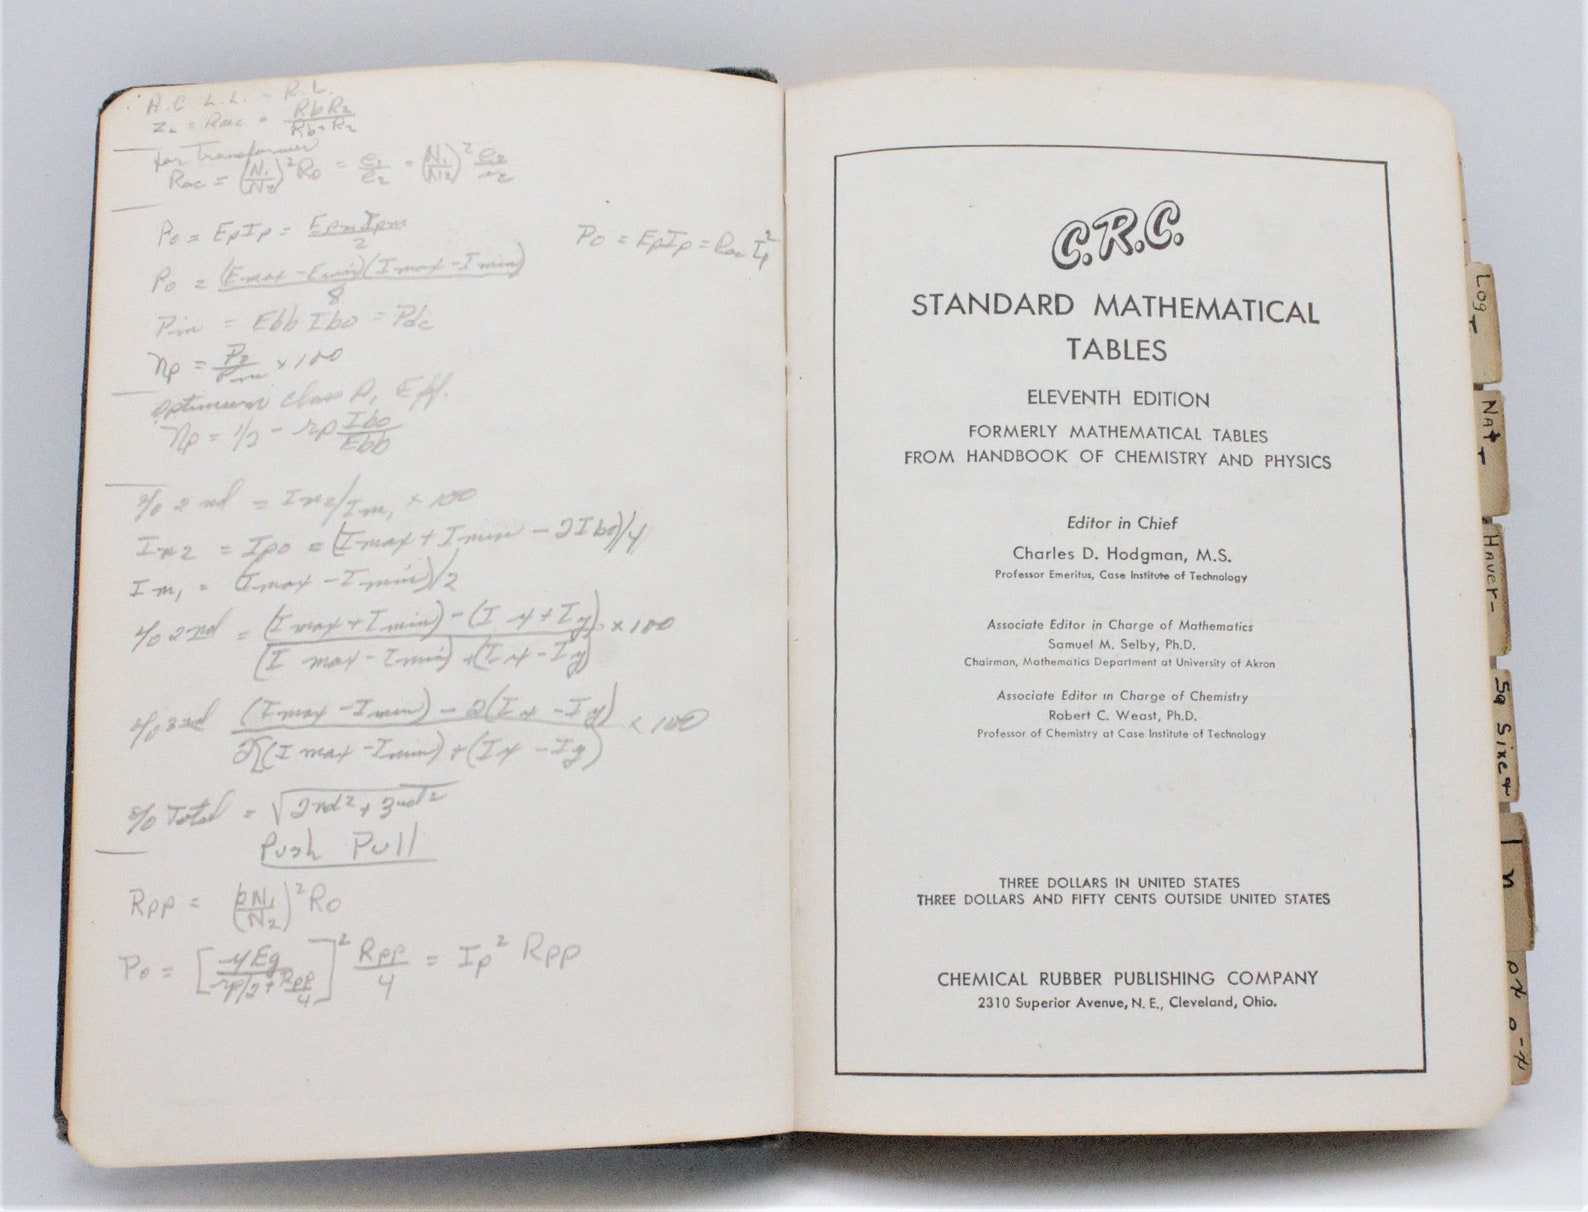 A.C. L.L. - R.L.
Z₂ = Rac = RbR2/Rb+R2
for Transformer
Rac = (N1/N2)² Ro = e1/e2 = (N1/N2)²
Po = EpIp = EpmIpm/2
Po = EpIp = Rac Ip²
Po = (Emax - Emin)(Imax - Imin)/8
Pin = Ebb Ibo = Pdc
ηp = /Pin × 100
optimum class A, Eff.
ηp = 1/2 - rp Ibo/Ebb
% 2nd = Im2/Im1 × 100
Im2 = Ipo = (Imax + Imin - 2Ibo)/4
Im1 = (Imax - Imin)/2
% 2nd = (Imax + Imin) - (Ix + Iy)/(Imax - Imin) + (Ix - Iy) × 100
% 3rd (Imax - Imin) - 2(Ix - Iy)/2[(Imax - Imin) + (Ix - Iy) × 100
% Total = √2nd² + 3rd²
Push Pull
Rpp = (pN1/N2)² Ro
Po = [μEg/rp/2 + Rpp/4]² Rpp/4 = Ip² Rpp
C.R.C.
STANDARD MATHEMATICAL
TABLES
ELEVENTH EDITION
FORMERLY MATHEMATICAL TABLES
FROM HANDBOOK OF CHEMISTRY AND PHYSICS
Editor in Chief
Charles D. Hodgman, M.S.
Professor Emeritus, Case Institute of Technology
Associate Editor in Charge of Mathematics
Samuel M. Selby, Ph.D.
Chairman, Mathematics Department at University of Akron
Associate Editor in Charge of Chemistry
Robert C. Weast, Ph.D.
Professor of Chemistry at Case Institute of Technology
THREE DOLLARS IN UNITED STATES
THREE DOLLARS AND FIFTY CENTS OUTSIDE UNITED STATES
CHEMICAL RUBBER PUBLISHING COMPANY
2310 Superior Avenue, N. E., Cleveland, Ohio.
Log T
Nat T
Haver-
Sq Sixe+
ln
e^x e^-x